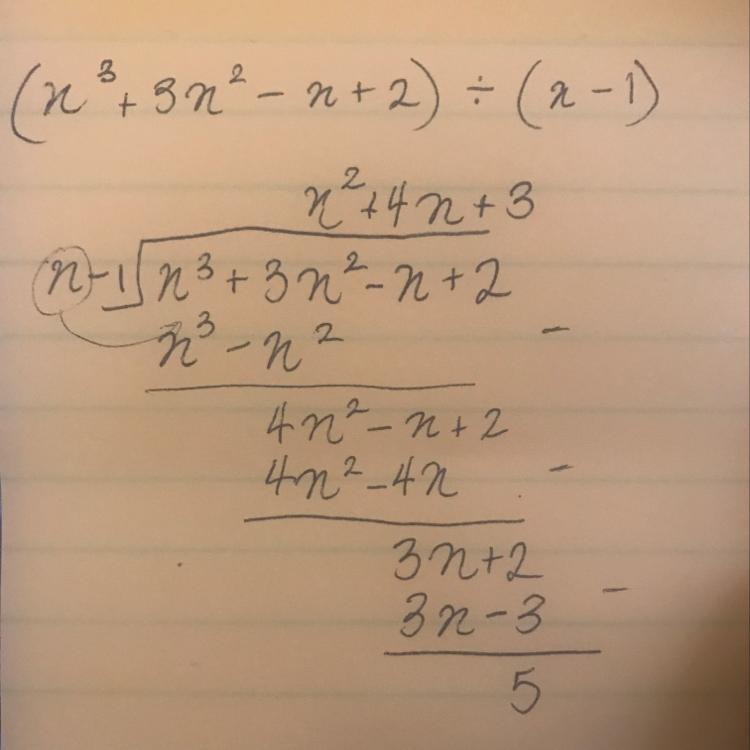 (x³ + 3x² - x + 2) ÷ (x - 1)
x² + 4x + 3
x - 1 √ x³ + 3x² - x + 2
x³ - x² -
4x² - x + 2
4x² - 4x -
3x + 2
3x - 3 -
5